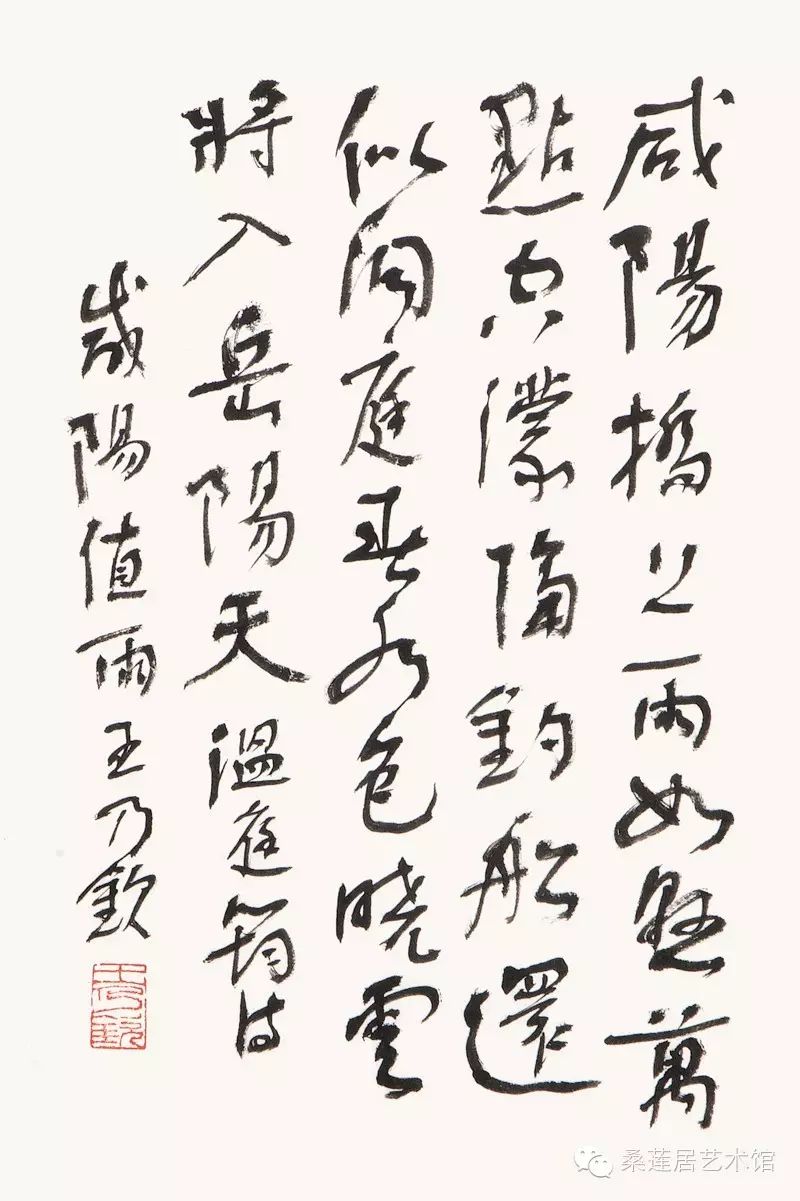 咸陽橋上雨如懸萬
點空濛隔釣船還
似洞庭春水色曉雲
將入岳陽天 溫庭筠詩
咸陽值雨 王乃欽
王乃欽
桑莲居艺术馆